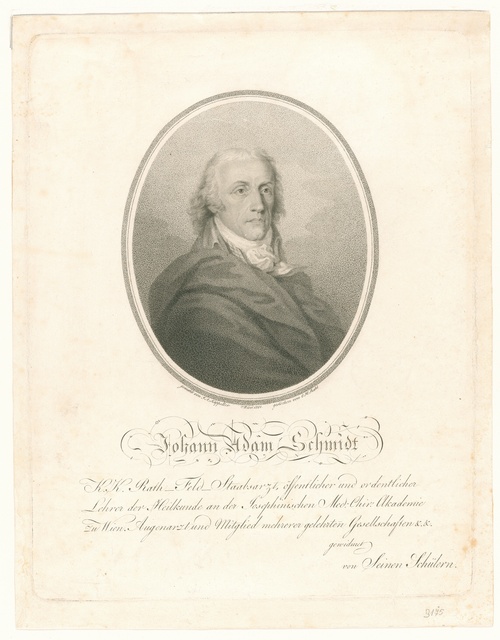 Johann Adam Schmidt
K. K. Rath, Feld-Staabsarzt, öffentlicher und ordentlicher
Lehrer der Heilkunde an der Josephinischen Med. Chir. Akademie
zu Wien, Augenarzt und Mitglied mehrerer gelehrten Gesellschaften &. &.
gewidmet
von Seinen Schülern.